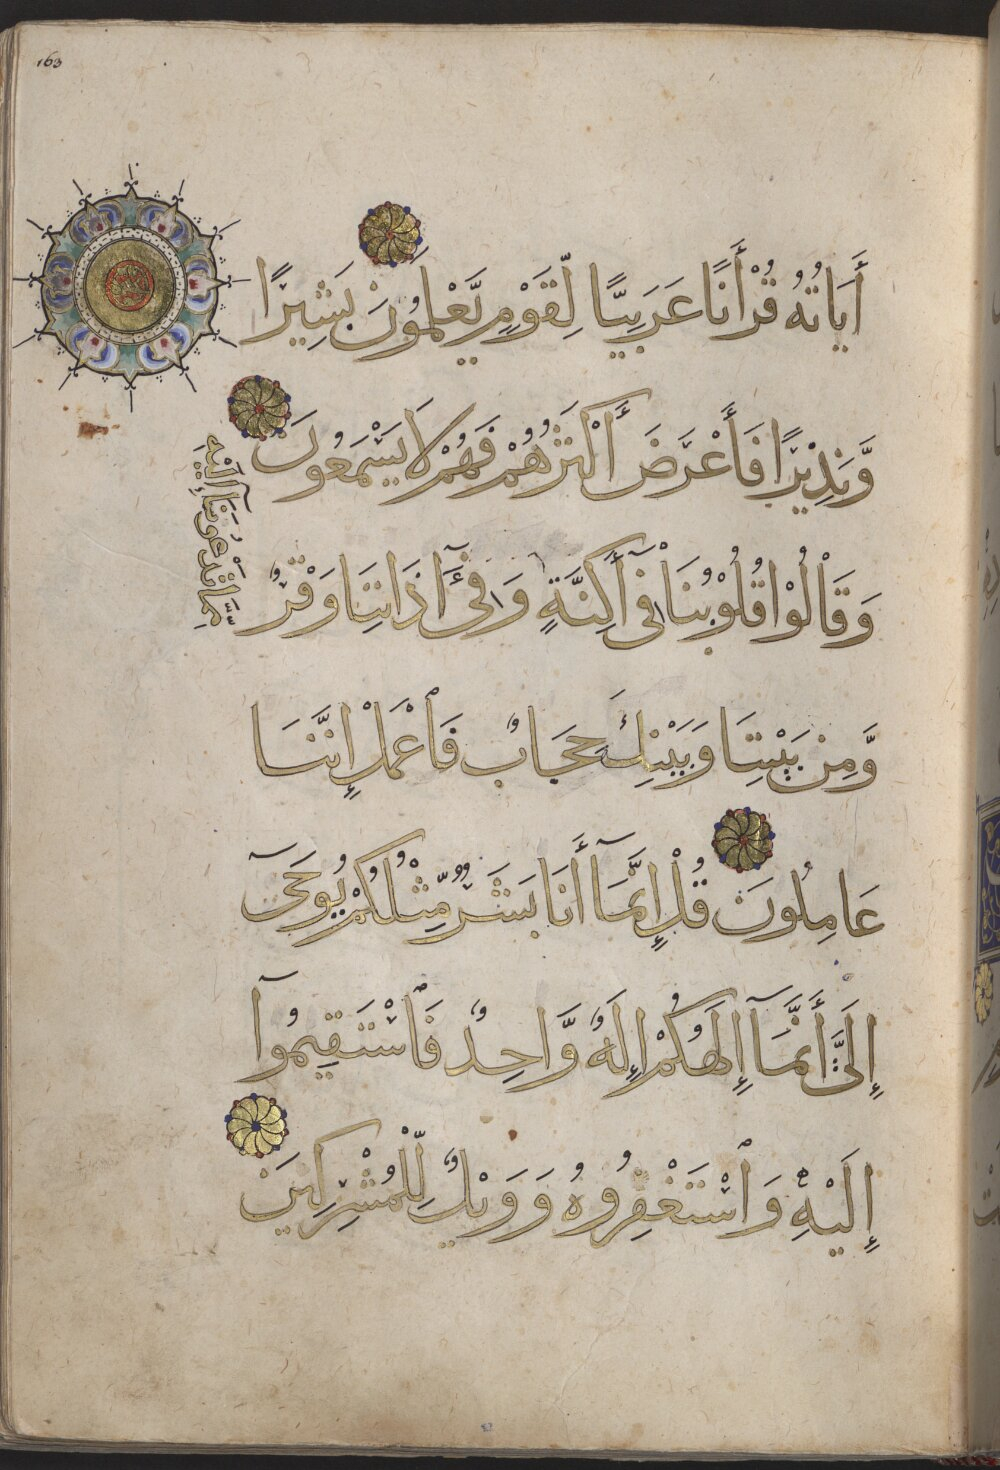 163
أَيَاتُهُ قُرْأَنًا عَرَبِيًّا لِّقَوْمٍ يَّعْلَمُونَ بَشِيرًا
وَّنَذِيْرًا فَأَعْرَضَ أَكْثَرُهُمْ فَهُمْ لَا يَسْمَعُونَ
وَقَالُوْا قُلُوْبُنَا فِىٓ أَكِنَّةٍ
مِّمَّا تَدْعُوْنَآ إِلَيْهِ
وَفِىٓ ءَاذَانِنَا وَقْرٌ
وَّمِنْ بَيْنِنَا وَبَيْنِكَ حِجَابٌ فَٱعْمَلْ إِنَّنَا
عَامِلُونَ قُلْ إِنَّمَآ أَنَا بَشَرٌ مِّثْلُكُمْ يُوحَىٓ
إِلَىَّ أَنَّمَآ إِلَهُكُمْ إِلَهٌ وَّاحِدٌ فَٱسْتَقِيمُوٓا
إِلَيْهِ وَٱسْتَغْفِرُوهُ وَوَيْلٌ لِّلْمُشْرِكِينَ